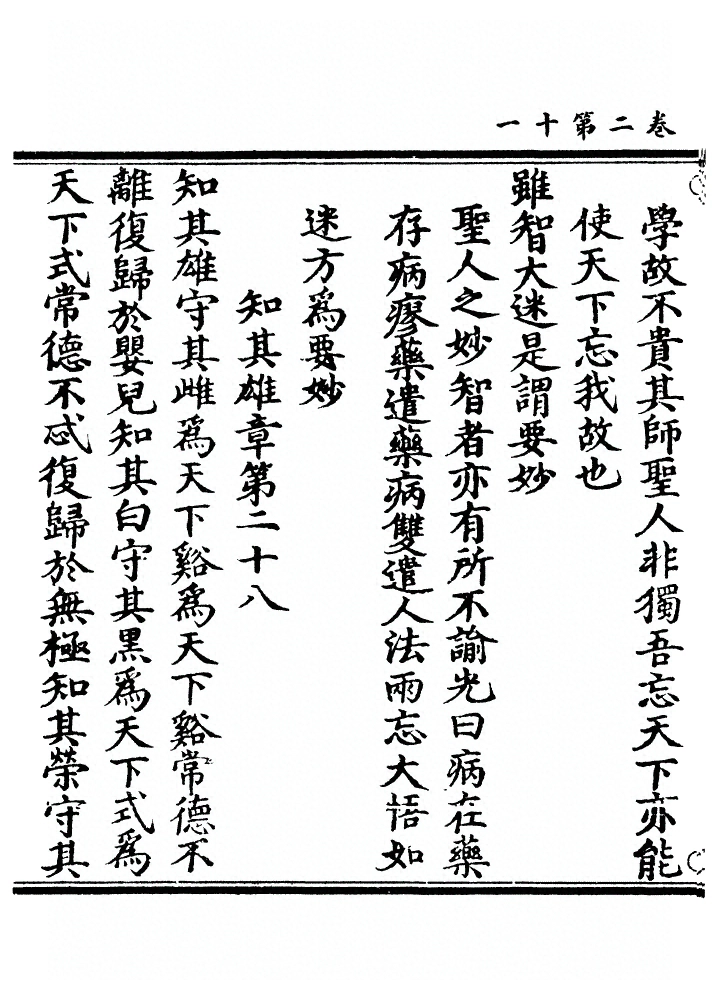 卷二第十一
學故不貴其師聖人非獨吾忘天下亦能
使天下忘我故也
雖智大迷是謂要妙
聖人之妙智者亦有所不諭光曰病在藥
存病瘳藥遣藥病雙遣人法兩忘大悟如
迷方爲要妙
知其雄章第二十八
知其雄守其雌爲天下谿爲天下谿常德不
離復歸於嬰兒知其白守其黑爲天下式爲
天下式常德不忒復歸於無極知其榮守其